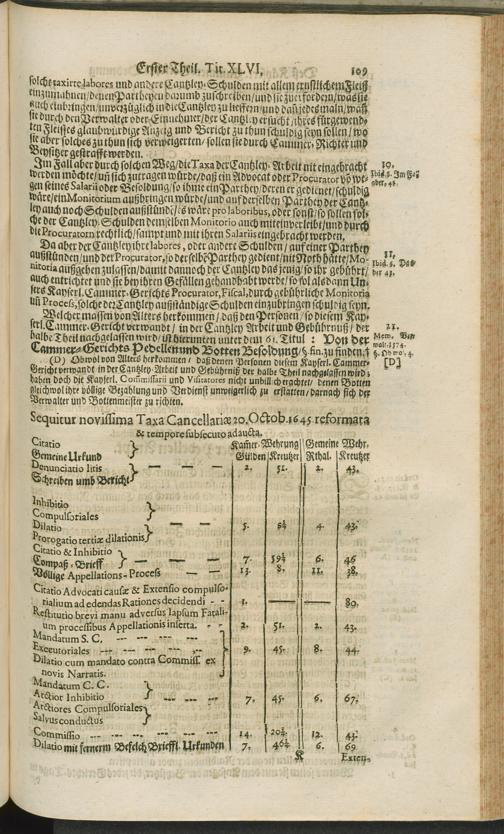 Erster Theil. Tit. XLVI. 109
solcht taxirte labores und andere Cantzley-Schulden mit allem ernstlichem Fleiß
einzumahnen / denen Partheyen darumb zuschreiben / und sie zu erfordern / was sie
auch einbringen / unverzüglich in die Cantzley zu lieffern / und daß jedesmals / waß
sie durch den Verwalter oder Einnehmer / der Cantzley ersucht / ihres fürgewend-
ten Fleisses glaubwürdige Anzeig und Bericht zu thun schuldig seyn sollen / wo
sie aber solches zu thun sich verweigerten / sollen sie durch Cammer-Richter und
Beysitzer gestrafft werden.
Im Fall aber durch solchen Weg / die Taxa der Cantzley-Arbeit nit eingebracht
werden möchte / uñ sich zutragen würde / daß ein Advocat oder Procurator võ we-
gen seines Salarii oder Besoldung / so ihme ein Parthey / deren er gedienet / schuldig
wäre / ein Monitorium außbringen würde / und auf derselben Parthey der Cantz-
ley auch noch Schulden außständ / es wäre pro laboribus, oder sonst / so sollen sol-
che der Cantzley-Schulden demselben Monitorio auch mit einverleibt / und durch
die Procuratorn rechtlich / sampt und mit ihren Salariis eingebracht werden.
10.
Ibid. §. Im Fall
Da aber der Cantzley ihre labores, oder andere Schulden / auf einer Parthey
außstünden / und der Procurator, so derselbē Parthey gedient / nit Noth hätte / Mo-
nitoria außgehen zulassen / damit dannoch der Cantzley das jenig / so ihr gebührt /
auch entrichtet und sie bey ihren Gefällen gehandhabt werde / so sol als dann Un-
sers Kayserl. Cammer-Gerichts Procurator, Fiscal, durch gebührliche Monitoria
uñ Process, solche der Cantzley außständige Schulden einzubringen schuldig seyn.
11.
Ibid. §. Da
Welcher massen von Alters herkommen / daß den Personen / so diesem Kay-
serl. Cammer-Gericht verwandt / in der Cantzley Arbeit und Gebührnuß / der
halbe Theil nachgelassen wird / ist hierunten unter dem 61. Titul: Von der
Cammer-Gerichts Pedellen und Botten Besoldung / §. fin. zu finden.
(D) Obwol von Alters herkommen / daß denen Personen diesem Kayserl. Cammer-
Gericht verwandt in der Cantzley-Arbeit und Gebührnuß der halbe Theil nachgelassen wird;
haben doch die Kayserl. Commissarii und Visitatores nicht unbillich erachtet / denen Botten
gleichwol ihre völlige Bezahlung und Verdienst unweigerlich zu erstatten / darnach sich der
Verwalter und Bottenmeister zu richten.
[D]
Sequitur novissima Taxa Cancellariæ 20. Octob. 1645 reformata
& tempore subsecuto adaucta.
Kam̃er-Wehrung Gemeine Wehr.
Gülden Kreutzer Rthal. Kreutzer
Citatio
Gemeine Urkund
Denunciatio litis 2. 51. 2. 43.
Schreiben umb Bericht
Inhibitio
Compulsoriales
Dilatio 5. 4. 43.
Prorogatio tertiæ dilationis
Citatio & Inhibitio
Compaß-Brieff 7. 59½ 6. 46
Völlige Appellations-Process 13. 8. 11. 38.
Citatio Advocati causæ & Extensio compulso-
rialium ad edendas Rationes decidendi 1. — — 80.
Restitutio brevi manu adversus lapsum Fatali-
um processibus Appellationis inserta. 2. 51. 2. 43.
Mandatum S. C.
Executoriales 9. 45. 8. 44.
Dilatio cum mandato contra Commiss. ex
novis Narratis.
Mandatum C. C.
Arctior Inhibitio 7. 45. 6. 67.
Arctiores Compulsoriales
Salvus conductus
Commissio 14. 20½ 12. 43.
Dilatio mit fernerm Befelch Brieffl. Urkunden 7. 46½ 6. 69
K Exten-